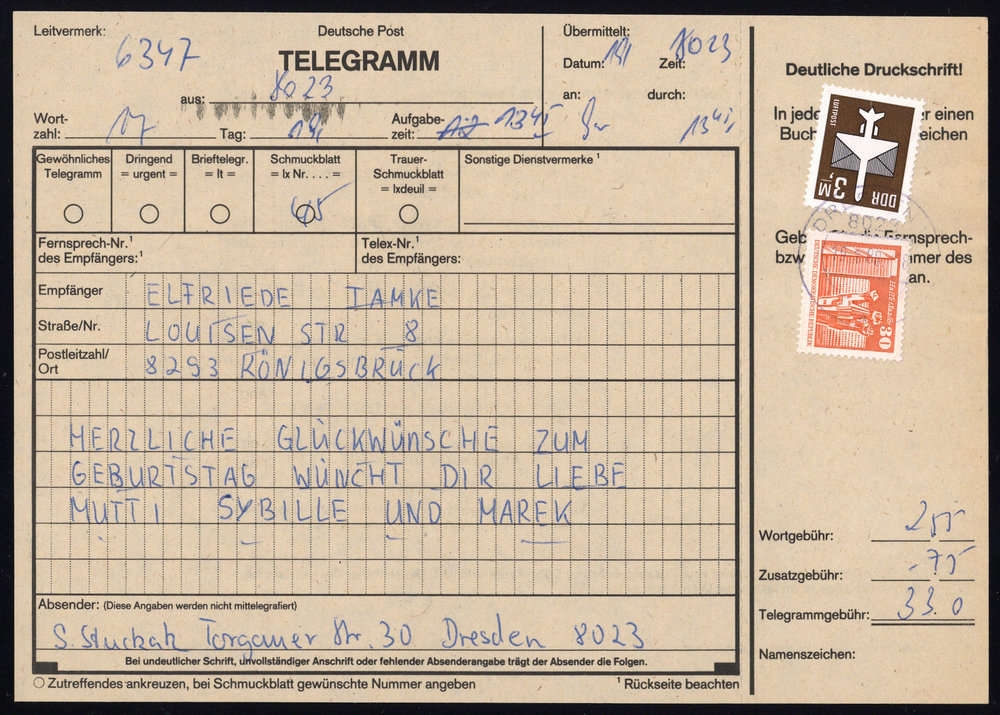 Leitvermerk: 6347
Deutsche Post
TELEGRAMM
aus: 8023
Übermittelt:
Datum: Zeit: 8023
an: durch:
Wort-
zahl: 17 Tag: Aufgabe-
zeit: 1345
1345
Gewöhnliches
Telegramm
Dringend
= urgent =
Brieftelegr.
= lt =
Schmuckblatt
= lx Nr. . . . . =
Trauer-
Schmuckblatt
= lxdeuil =
Sonstige Dienstvermerke ¹
Fernsprech-Nr.¹
des Empfängers:¹
Telex-Nr.¹
des Empfängers:
Empfänger ELFRIEDE TAMKE
Straße/Nr. LOUISEN STR 8
Postleitzahl/
Ort 8293 KÖNIGSBRÜCK
HERZLICHE GLÜCKWÜNSCHE ZUM
GEBURTSTAG WÜNCHT DIR LIEBE
MUTTI SYBILLE UND MAREK
Absender: (Diese Angaben werden nicht mittelegrafiert)
S. Stuckak Torgauer Str. 30 Dresden 8023
Bei undeutlicher Schrift, unvollständiger Anschrift oder fehlender Absenderangabe trägt der Absender die Folgen.
Zutreffendes ankreuzen, bei Schmuckblatt gewünschte Nummer angeben
¹ Rückseite beachten
Deutliche Druckschrift!
In einen
Buch
LUFTPOST
3,M
DDR
8023
Fernsprech-
des
an.
DEUTSCHE DEMOKRATISCHE REPUBLIK
30
Wortgebühr: 255
Zusatzgebühr: -75
Telegrammgebühr: 33.0
Namenszeichen: